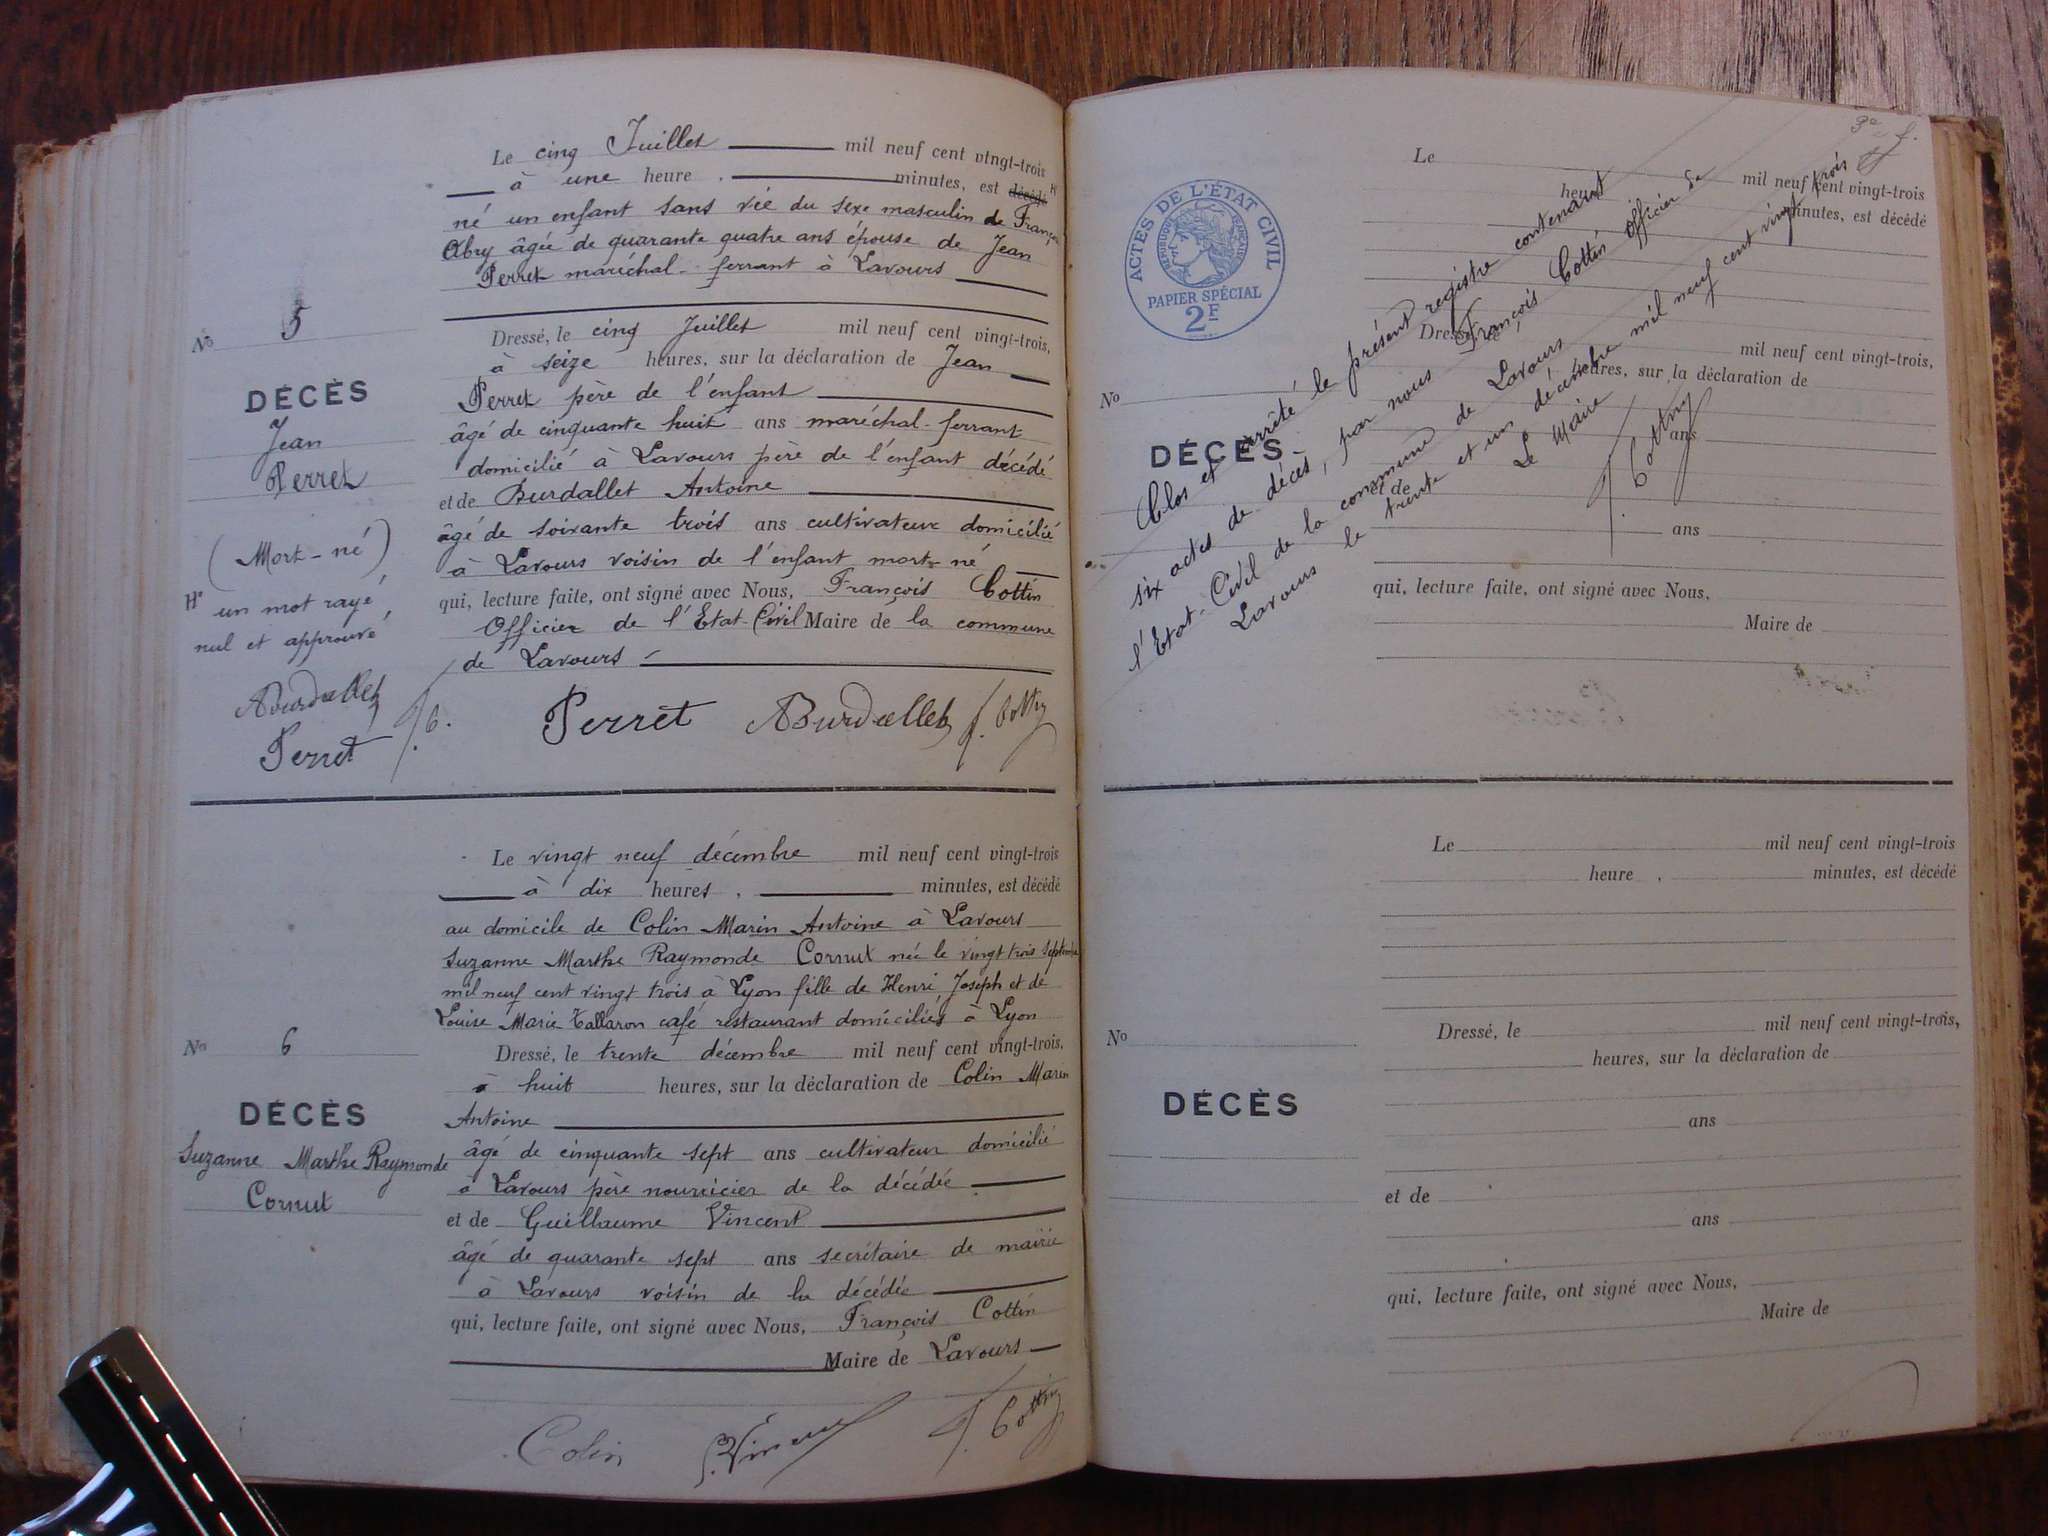 Le cinq Juillet mil neuf cent vingt-trois
à une heure, minutes, est décédé
né un enfant sans vie du sexe masculin de Françoise
Abry âgée de quarante quatre ans épouse de Jean
Perret maréchal-ferrant à Lavours
No 5
DÉCÈS
Jean
Perret
(Mort-né)
un mot rayé
nul et approuvé
ABurdallet
Perret
f. C.
Dressé, le cinq Juillet mil neuf cent vingt-trois,
à seize heures, sur la déclaration de Jean
Perret père de l'enfant
âgé de cinquante huit ans maréchal-ferrant
domicilié à Lavours père de l'enfant décédé
et de Burdallet Antoine
âgé de soixante trois ans cultivateur domicilié
à Lavours voisin de l'enfant mort-né
qui, lecture faite, ont signé avec Nous, François Cottin
Officier de l'Etat-Civil Maire de la commune
de Lavours
Perret ABurdallet f. Cottin
Le vingt neuf décembre mil neuf cent vingt-trois
à dix heures, minutes, est décédé
au domicile de Colin Marin Antoine à Lavours
Suzanne Marthe Raymonde Cornut née le vingt trois septembre
mil neuf cent vingt trois à Lyon fille de Henri Joseph et de
Louise Marie Tallaron café restaurant domiciliés à Lyon
No 6
DÉCÈS
Suzanne Marthe Raymonde
Cornut
Dressé, le trente décembre mil neuf cent vingt-trois,
à huit heures, sur la déclaration de Colin Marin
Antoine
âgé de cinquante sept ans cultivateur domicilié
à Lavours père nourricier de la décédée
et de Guillaume Vincent
âgé de quarante sept ans secrétaire de mairie
à Lavours voisin de la décédée
qui, lecture faite, ont signé avec Nous, François Cottin
Maire de Lavours
Colin G. Vincent f. Cottin
ACTES DE L'ÉTAT CIVIL
RÉPUBLIQUE FRANÇAISE
PAPIER SPÉCIAL
2F
Le mil neuf cent vingt-trois
heure minutes, est décédé
No
DÉCÈS
Dressé, le mil neuf cent vingt-trois,
heures, sur la déclaration de
ans
et de
ans
qui, lecture faite, ont signé avec Nous,
Maire de
Clos et arrêté le présent registre contenant
six actes de décès, par nous François Cottin Officier de
l'Etat-Civil de la commune de Lavours
Lavours le trente et un décembre mil neuf cent vingt trois
Le Maire
f. Cottin
Le mil neuf cent vingt-trois
heure, minutes, est décédé
No
DÉCÈS
Dressé, le mil neuf cent vingt-trois,
heures, sur la déclaration de
ans
et de
ans
qui, lecture faite, ont signé avec Nous,
Maire de